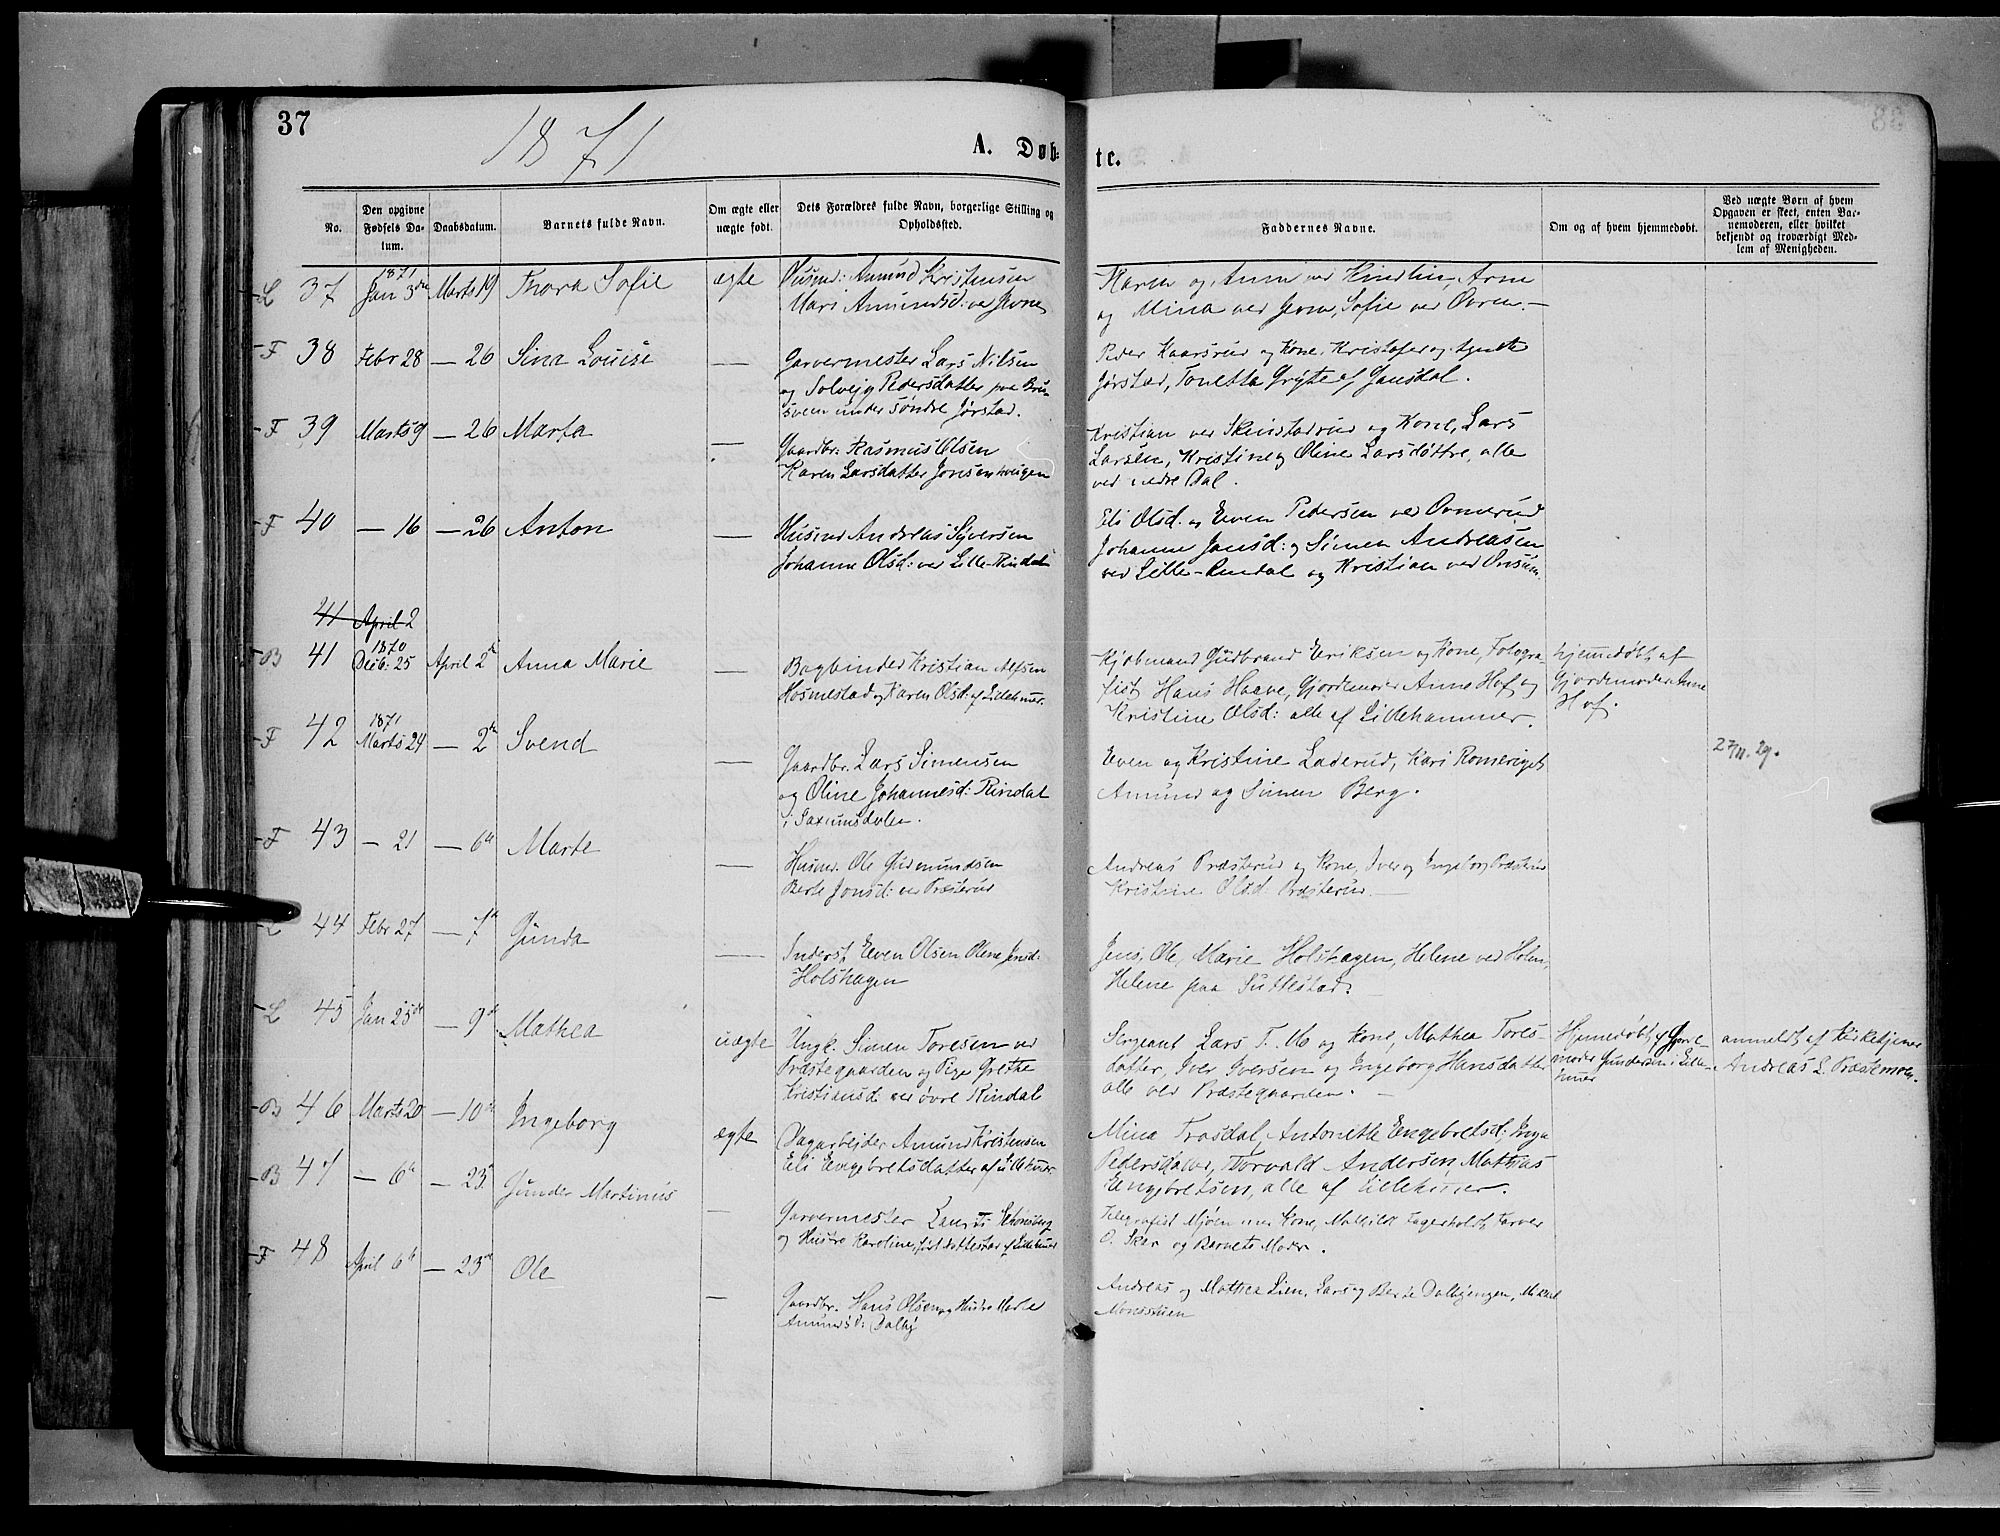 37
1871
A. Døb-
te.
No.
Den opgivne
Fødsels Da-
tum.
Daabsdatum.
Barnets fulde Navn.
Om ægte eller
uægte født.
Dets Forældres fulde Navn, borgerlige Stilling og
Opholdssted.
Faddernes Navne.
Om og af hvem hjemmedøbt.
Ved uægte Børn af hvem
Opgaven er skeet, enten Bar-
nemoderen, eller hvilket
bekjendt og troværdigt Med-
lem af Menigheden.
L 37 1871 Jan 3die Marts 19 Thora Sofie ægte
Husmd: Amund Kristensen
Mari Amundsd: ved Jevne
Karen og Anne ved Kindlin, Arne
og Mina ved Jevne, Sofie ved Øvren.
F 38 Febr 28 — 26 Sina Louise —
Garvermester Lars Nilsen
og Solveig Pedersdatter paa Bru-
sveen under søndre Jørstad.
Peder Kaarsrud og Kone, Kristofer og Agnethe
Jørstad, Tonetta Gryte af Gausdal.
F 39 Marts 9 — 26 Marta —
Gaardbr: Rasmus Olsen
Karen Larsdatter Jonsenhaugen
Kristian ved Skinstadrud og Kone, Lars
Larsen, Kristine og Oline Larsdøttre, alle
ved nedre Dal.
F 40 — 16 — 26 Anton —
Husmd Andreas Syversen
Johanne Olsd: ved Lille-Rindal
Eli Olsd. og Even Pedersen ved Ovnerud
Johanne Jonsd: og Simen Andreasen
ved Lille-Rindal og Kristian ved Onsum.
41 April 2
B 41 1870 Desb: 25 April 2de Anna Marie —
Bogbinder Kristian Alfsen
Hosmestad og Karen Olsd: af Lillehmer.
Kjøbmand Gudbrand Eriksen og Kone, Fotogra-
fist Hans Haave, Gjordemoder Anne Hof og
Kristine Olsd: alle af Lillehammer.
hjemmedøbt af
Gjordemoder Anne
Hof.
F 42 1871 Marts 24 — 2de Svend —
Gaardbr. Lars Simensen
og Oline Johannesd: Rindal
i Saxumsdalen.
Even og Kristine Laderud, Kari Romeriget
Amund og Simen Berg.
27/11. 29.
F 43 — 21 — 6te Marte —
Husmd. Ole Gudmundsen
Berte Jonsd: ved Præsterud
Andreas Præsterud og Kone, Iver og Ingeborg Præsterud
Kristine Olsd: Præsterud.
L 44 Febr 27 — 7de Gunda —
Inderst Even Olsen Olene Jensd:
Holshagen
Jens, Ole, Marie Holshagen, Helene ved Holen,
Helene paa Suttestad.
L 45 Jan 25de — 9de Mathea uægte
Ungk. Simen Toresen ved
Præstegaarden og Pige Grethe
Kristiansd: ved øvre Rindal
Sergeant Lars T. Mo og Kone, Mathea Tores-
datter, Iver Iversen og Ingeborg Hansdatter
alle ved Præstegaarden.
Hjemmedøbt af Gjorde-
moder Gundersen i Lille-
hmer
anmeldt af Kirketjener
Andreas L. Præstemoen.
B 46 Marts 20 — 10de Ingeborg ægte
Dagarbejder Amund Kristensen
Eli Engebretsdatter af Lillehmer
Mina Trosdal, Antonette Engebretsd: Inga
Pedersdatter, Torvald Andersen, Mathias
Engebretsen, alle af Lillehmer.
B 47 — 6te — 23. Gunder Martinus —
Garvermester Laurits
og Hustro Karoline, født af Lillehmer
Telegrafist Mjøen med Kone, Mathilde Fagerholdt, Farver
O. Skar og Barnets Moder.
F 48 April 6te — 23de Ole —
Gaardbr. Hans Olsen og Hustro Marte
Amundsd: Dalby
Andreas og Mathea Lien, Lars og Berte Dalbyengen, Mikael